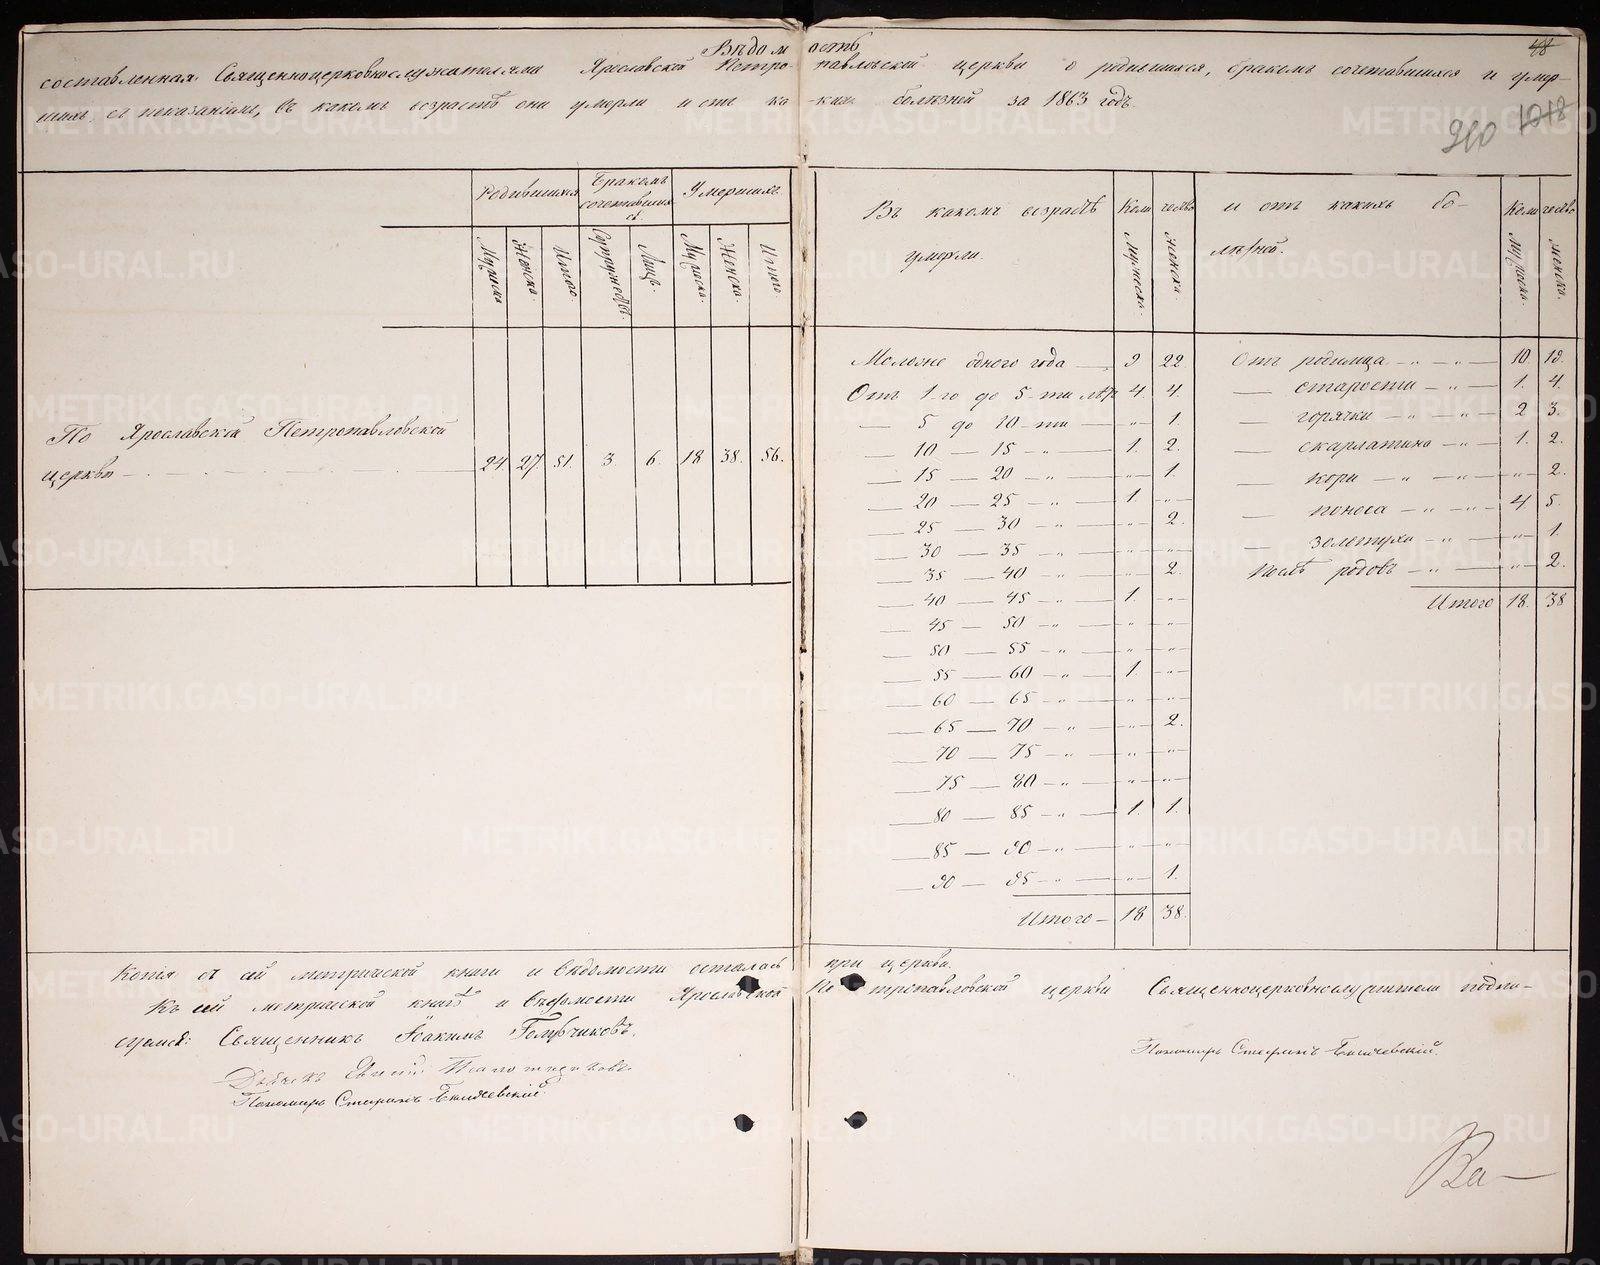 Вѣдомость
составленная Священноцерковнослужителями Ярославской Петропавловской церкви о родившихся, бракомъ сочетавшихся и умер-
шихъ съ показаніемъ, въ какомъ возрастѣ они умерли и отъ ка-кихъ болѣзней за 1863 годъ.
48
1018
910
Родившихся
Бракомъ сочетавшихся
Умершихъ
Мужеска.
Женска.
Итого.
Супружествъ.
Лицъ.
Мужеска.
Женска.
Итого
По Ярославской Петропавловской
церкви — 24. 27. 51. 3. 6. 18 38. 56.
Въ какомъ возрастѣ умерли.
Коли чество
Мужеска.
Женска.
и отъ какихъ бо-
лѣзней.
Коли чество
Мужеска.
Женска.
Моложе одного года — 9 22
Отъ 1-го до 5-ти лѣтъ 4. 4.
— 5 до 10-ти — „ — 1.
— 10 — 15 — „ — 1. 2.
— 15 — 20 — „ — „ — 1.
— 20 — 25 — „ — 1. — „ —
— 25 — 30 — „ — „ — 2.
— 30 — 35 — „ — „ — „ —
— 35 — 40 — „ — „ — 2.
— 40 — 45 — „ — 1. — „ —
— 45 — 50 — „ — „ — „ —
— 50 — 55 — „ — „ — „ —
— 55 — 60 — „ — 1. — „ —
— 60 — 65 — „ — „ — „ —
— 65 — 70 — „ — „ — 2.
— 70 — 75 — „ — „ — „ —
— 75 — 80 — „ — „ — „ —
— 80 — 85 — „ — 1. 1.
— 85 — 90 — „ — „ — „ —
— 90 — 95 — „ — „ — 1.
Итого — 18 38.
Отъ родимца — „ — „ — 10 19.
— старости — „ — 1. 4.
— горячки — „ — „ — 2 3.
— скарлатина — „ — 1. 2.
— кори — „ — „ — „ — 2.
— поноса — „ — „ — 4 5.
— золотуха — „ — „ — 1.
послѣ родовъ — „ — „ — 2.
Итого 18. 38
Копія съ сей метрической книги и вѣдомости осталась при церкви.
Къ сей метрической книгѣ и вѣдомости Ярославской Петропавловской церкви Священноцерковнослужители подпи-
суемся: Священникъ Іоакимъ Голубчиковъ.
Пономарь Стефанъ
Пономарь Стефанъ
METRIKI.GASO-URAL.RU